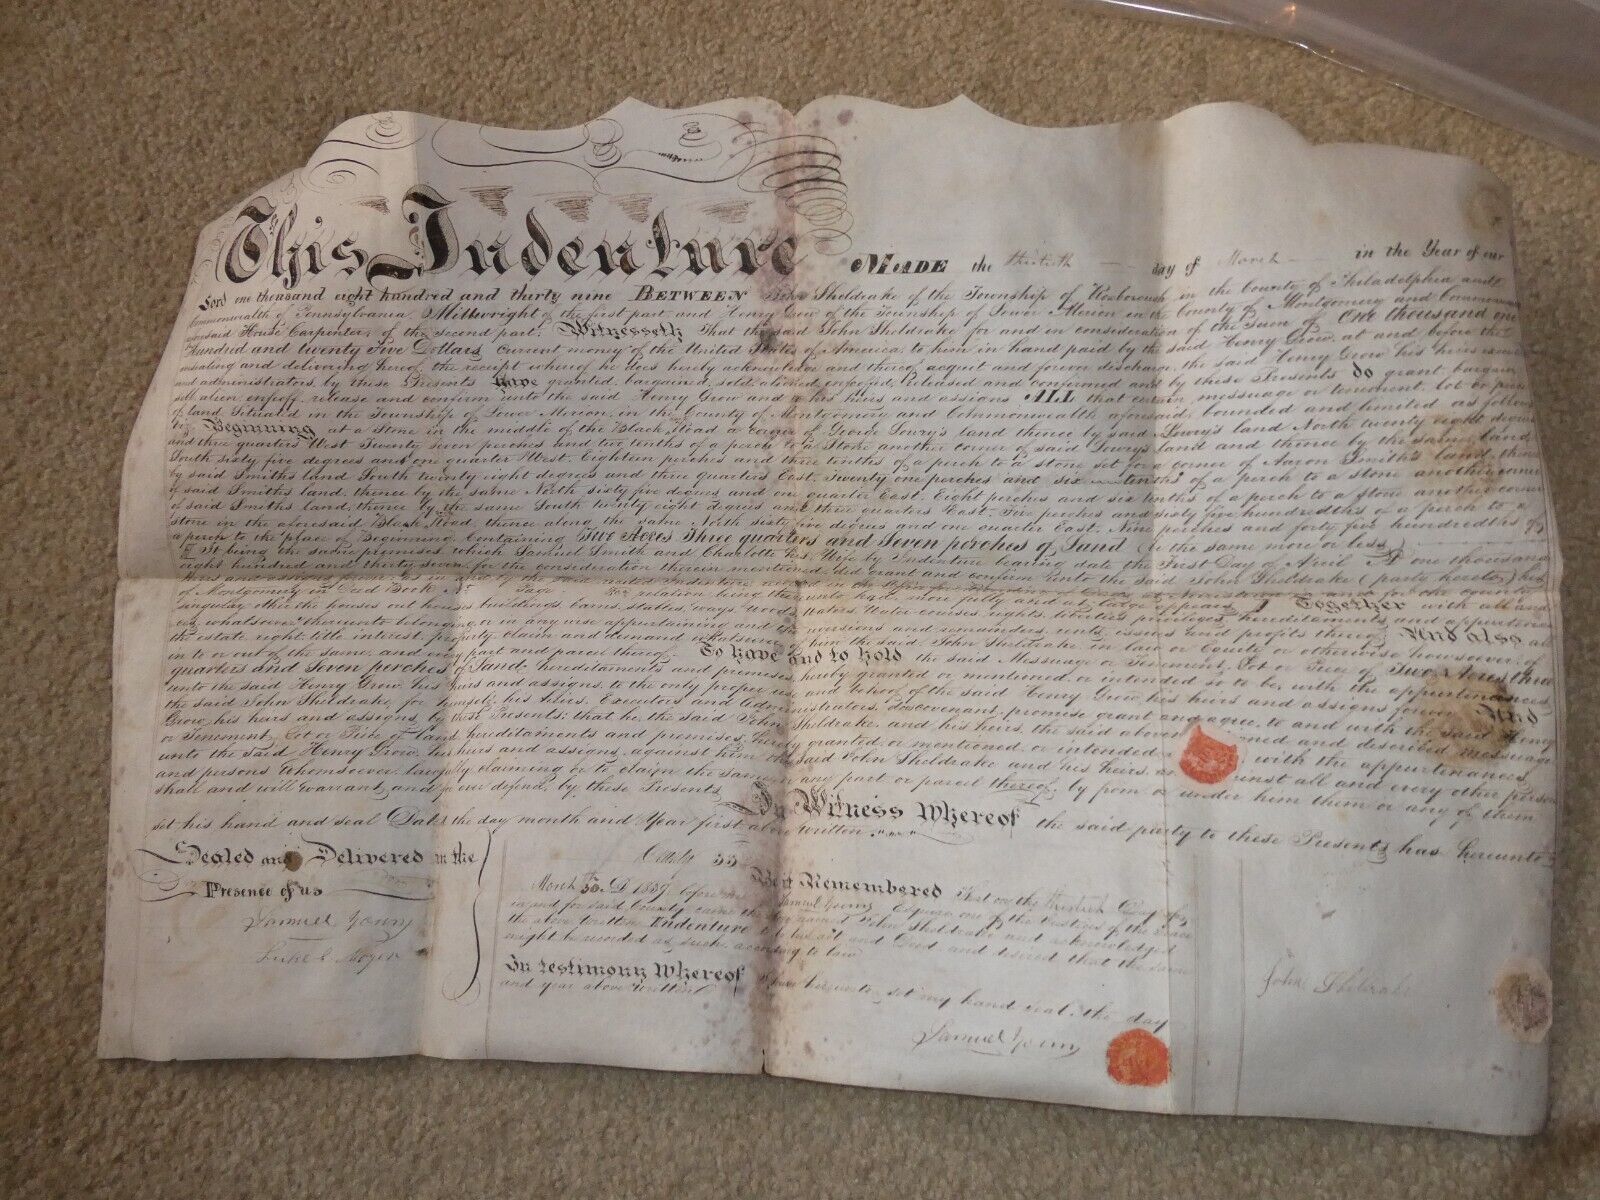 This Indenture MADE the thirtieth day of March in the Year of our
Lord one thousand eight hundred and thirty nine BETWEEN John Sheldrake of the Township of Roxborough in the County of Philadelphia and
Commonwealth of Pennsylvania, Millwright of the first part and Henry Grow of the Township of Lower Merion in the County of Montgomery and Commonwealth
aforesaid House Carpenter, of the second part. Witnesseth That the said John Sheldrake for and in consideration of the sum of One thousand one
Hundred and twenty Five Dollars current money of the United States of America, to him in hand paid by the said Henry Grow, at and before the
ensealing and delivering hereof, the receipt whereof he does hereby acknowledge and thereof acquit and forever discharge, the said Henry Grow his heirs
and administrators, by these Presents have granted, bargained, sold, aliened, enfeoffed, released and confirmed and by these Presents do grant, bargain,
sell, alien, enfeoff, release and confirm unto the said Henry Grow and a his heirs and assigns ALL that certain messuage or tenement, lot or piece
of land Situated in the Township of Lower Merion, in the County of Montgomery and Commonwealth aforesaid, bounded and limited as follows
Viz Beginning at a Stone in the middle of the Black Road a corner of George Lowry's land thence by said Lowry's land North twenty eight degrees
and three quarters West Twenty seven perches and two tenths of a perch to a Stone another corner of said Lowry's land and thence by the same land
South sixty five degrees and one quarter West. Eighteen perches and three tenths of a perch to a stone set for a corner of Aaron Smith's land, thence
by said Smiths land South twenty eight degrees and three quarters East, Twenty one perches and six tenths of a perch to a stone another corner
of said Smiths land, thence by the same North sixty five degrees and one quarter East. Eight perches and six tenths of a perch to a Stone another corner
of said Smiths land, thence by the same South twenty eight degrees and three quarters East, Five perches and sixty five hundredths of a perch to a
stone in the aforesaid Black Road, thence along the same North sixty five degrees and one quarter East, Nine perches and forty five hundredths of
a perch to the place of Beginning, Containing Two Acres Three quarters and Seven perches of Land (be the same more or less)
It being the same premises which Samuel Smith and Charlotte his Wife by Indenture bearing date the First Day of April A one thousand
eight hundred and thirty seven for the consideration therein mentioned did grant and confirm unto the said John Sheldrake (party hereto) his
heirs and assigns forever, As in and by the said recited Indenture
of Montgomery in Deed Book No Page relation being thereunto had, more fully and at large appears. Together with all and
singular other the houses out houses buildings, barns, stables, ways, Woods, Waters, Water courses, rights, liberties privileges, hereditaments and appurtenances
whatsoever thereunto belonging or in any wise appertaining and the reversions and remainders, rents, issues and profits thereof; And also all
the estate right, title interest, property claim and demand whatsoever of him the said John Sheldrake, in law or Equity or otherwise howsoever, of
in to or out of the same, and every part and parcel thereof. To have and to hold the said Messuage or Tenement, Lot or Piece of Two Acres three
quarters and Seven perches of Land, hereditaments and premises hereby granted or mentioned, or intended so to be, with the appurtenances
unto the said Henry Grow, his heirs and assigns, to the only proper use and behoof of the said Henry Grow his heirs and assigns forever And
the said John Sheldrake, for himself; his heirs, Executors and Administrators, Do covenant, promise grant and agree, to and with the said Henry
Grow, his heirs and assigns, by these Presents; that he, the said John Sheldrake, and his heirs, the said above and described messuage
or Tenement, Lot or Piece of land hereditaments and premises, hereby granted or mentioned, or intended with the appurtenances,
unto the said Henry Grow, his heirs and assigns, against him the said John Sheldrake and his heirs, against all and every other person
and persons Whomsoever, lawfully claiming or to claim the same or any part or parcel thereof, by from or under him them or any of them
shall and will warrant and forever defend, by these Presents In Witness Whereof the said party to these Presents has hereunto
set his hand and seal Dated the day month and Year first above written
Sealed and Delivered in the
Presence of us
Samuel Young
Luke C Moyer
March 30 D 1839 before me Be it Remembered That on the thirtieth Day of
Samuel Young Esquire one of the Justices of the Peace
in and for said County came the above named John Sheldrake and acknowledged
the above written Indenture to be his act and Deed, and desired that the same
might be recorded as such, according to law
In testimony Whereof I have hereunto set my hand seal, the day
and year above written
Samuel Young
John Sheldrake